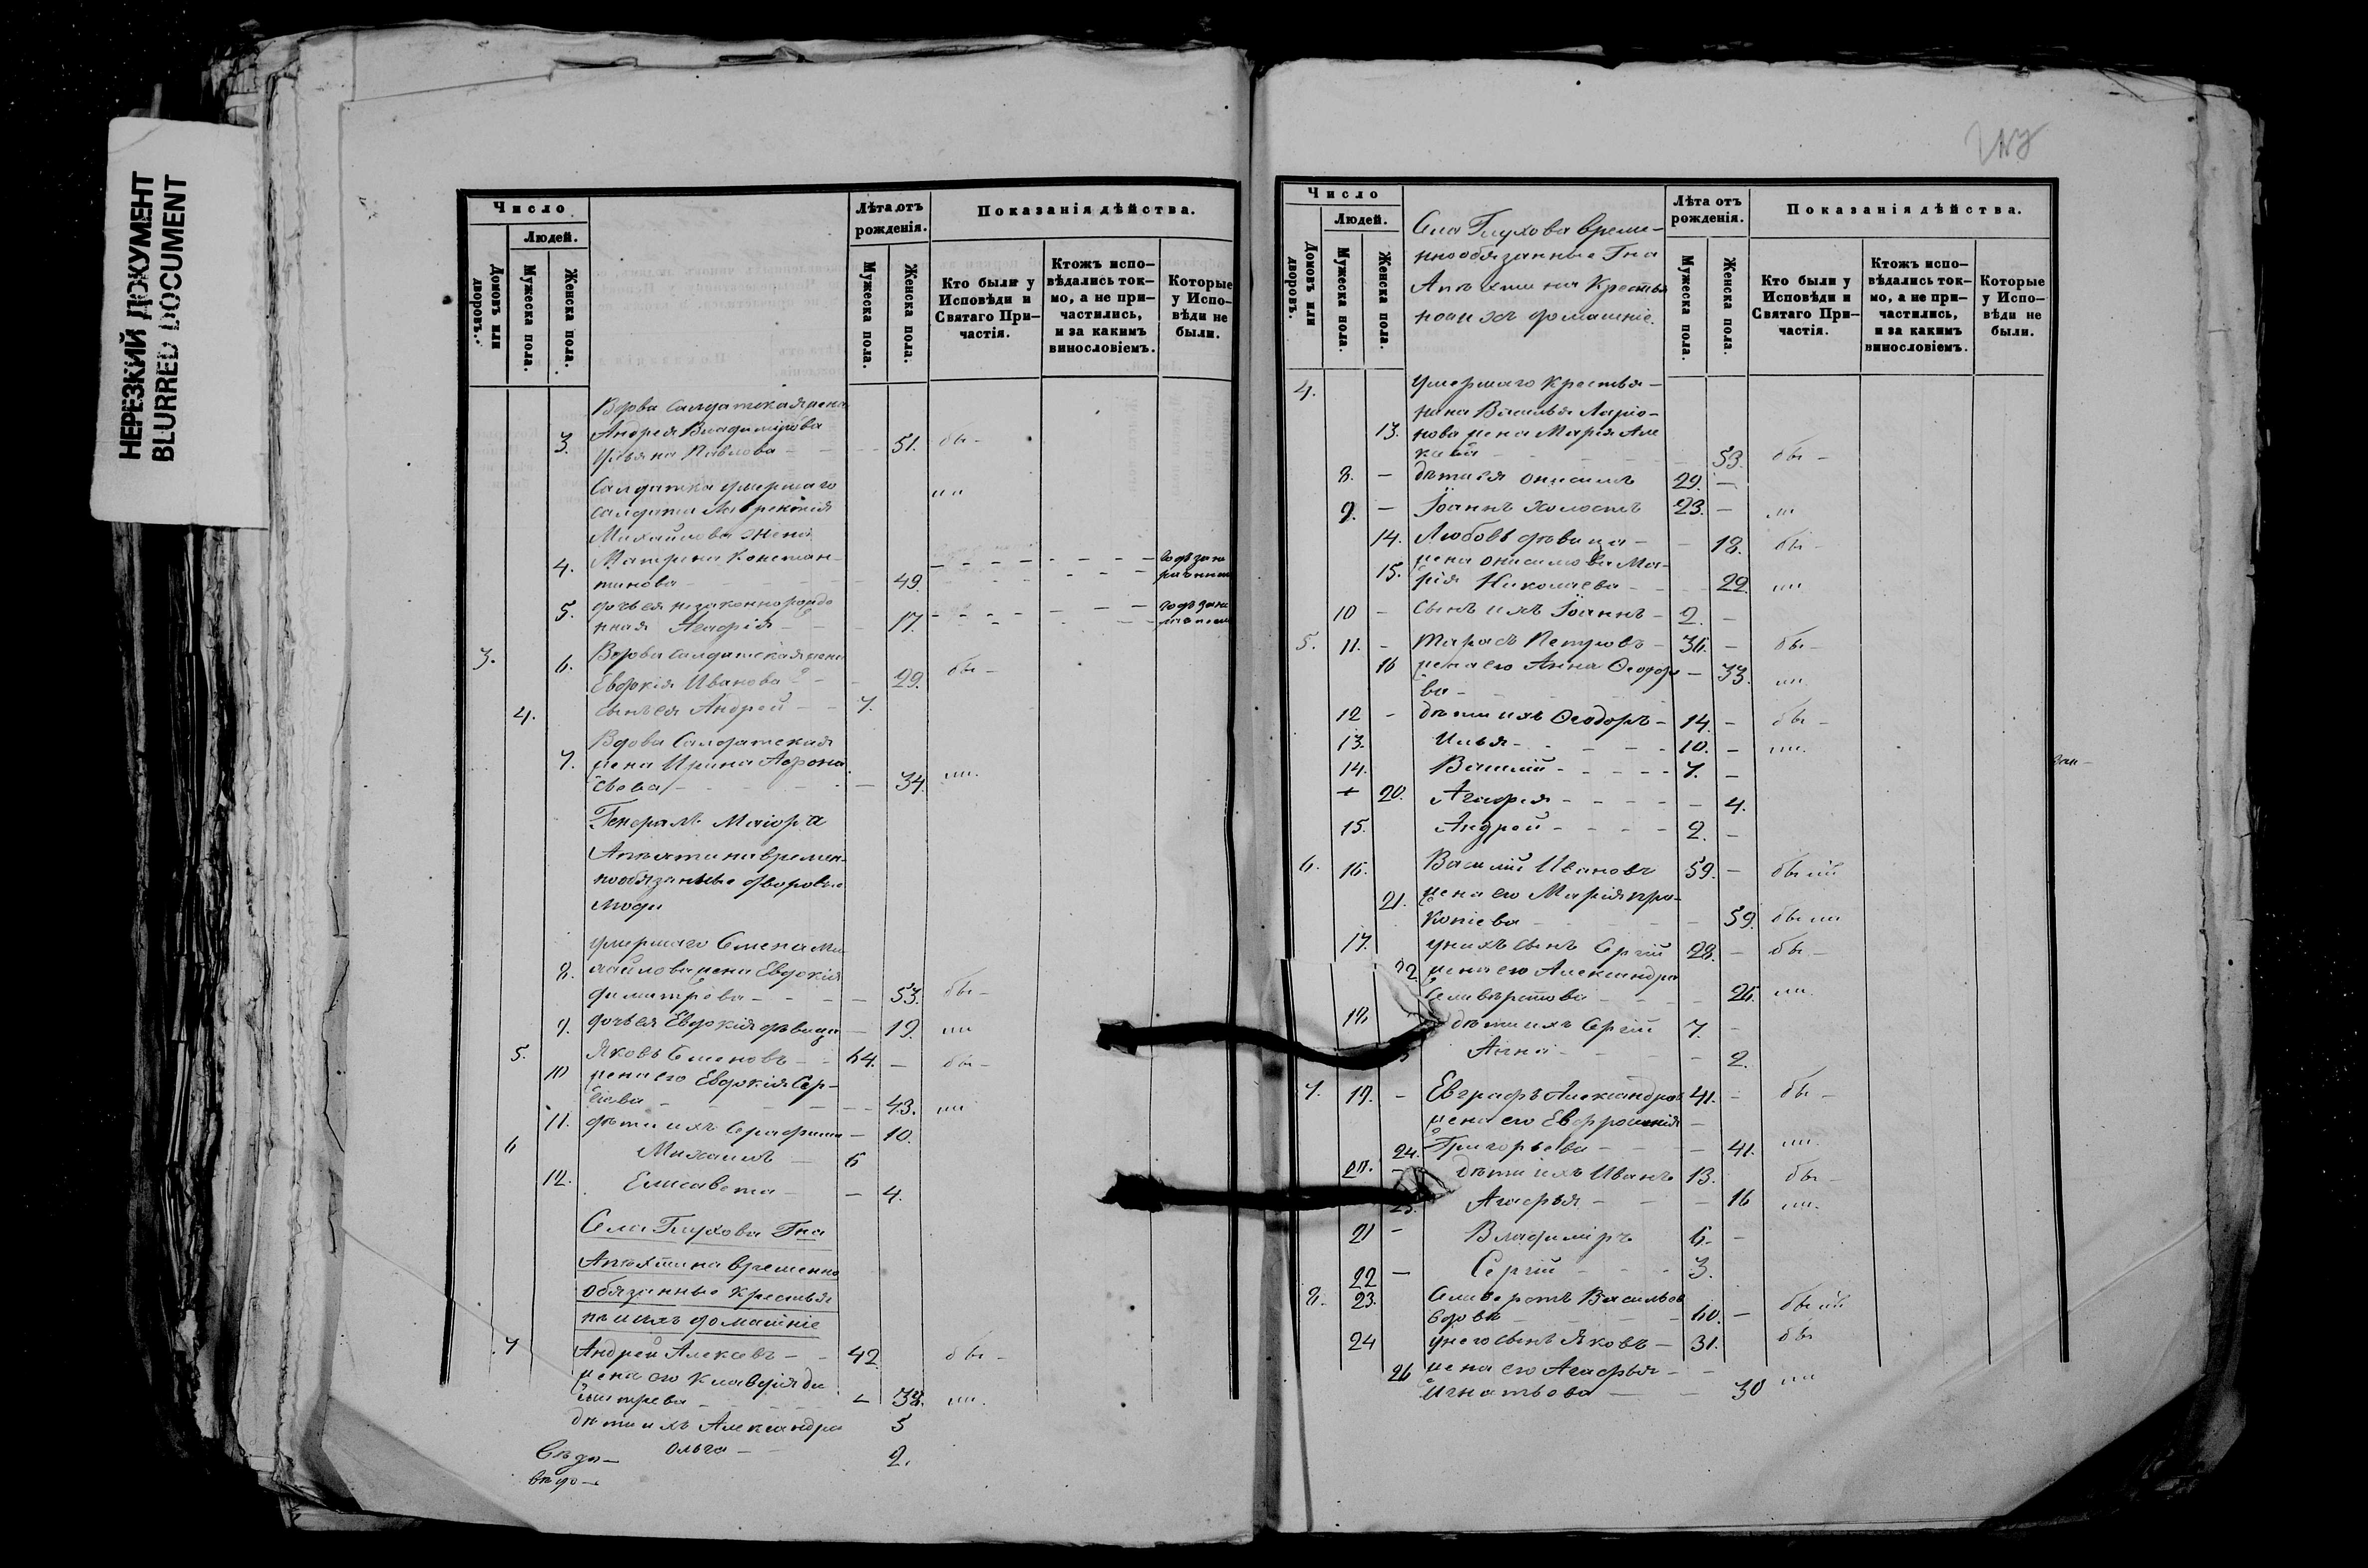 НЕРЕЗКИЙ ДОКУМЕНТ
BLURRED DOCUMENT
Число
Людей.
Домовъ или дворовъ.
Мужеска пола.
Женска пола.
Лѣта отъ рожденія.
Мужеска пола.
Женска пола.
Показанія дѣйства.
Кто были у Исповѣди и Святаго При-
частія.
Ктожъ испо-
вѣдались ток-
мо, а не при-
частились,
и за какимъ
винословіемъ.
Которые
у Испо-
вѣди не
были.
Вдова Салдатская жена
3. Андрея Владимірова
Ульяна Павлова - 51. бы-
Салдатка умершаго
салдата Лаврентія
Михайлова жена
4. Матрена Констан-
тинова 49.
5. дочь ея незаконнорожде
нная Агафія - 17.
3. 6. Вдова салдатская жена
Евдокія Иванова - 29. бы-
4. сынъ ея Андрей - 7.
Вдова Салдатская
7. жена Ирина Афона
сьева - 34.
Генералъ Маіора
Апухтина времен-
нообязанные дворовые
люди
умершаго Семена Ми
8. хайлова жена Евдокія
димитріева - 53. бы-
9. дочь ея Евдокія дѣвица - 19.
5. Яковъ Семеновъ - 64. - бы-
10 жена его Евдокія Сер-
гіева - 43.
11. дѣти ихъ Серафима - 10.
6 Михаилъ - 6
12. Елисавета - 4.
Села Глухова Гна
Апухтина временно
обязанные крестья
не и ихъ домашніе
7 Андрей Алексѣвъ - 42 бы-
жена его Клавдія ди
митрева - 38.
дѣти ихъ Александра 5
Ольга - 2.
Число
Людей.
Домовъ или дворовъ.
Мужеска пола.
Женска пола.
Села Глухова време-
ннообязанные Гна
Апухтина Крестья
не и ихъ домашніе.
Лѣта отъ рожденія.
Мужеска пола.
Женска пола.
Показанія дѣйства.
Кто были у
Исповѣди и
Святаго При-
частія.
Ктожъ испо-
вѣдались ток-
мо, а не при-
частились,
и за какимъ
винословіемъ.
Которые
у Испо-
вѣди не
были.
4. умершаго крестья-
нина Василья Ларіо-
13. нова жена Марія Але
ксѣва 53. бы-
8. - дѣти ея Онисимъ 29. -
9. - Іоаннъ холостъ 23. -
14. Любовь дѣвица - 18. бы-
жена Онисимова Ма-
15. рія Николаева - 22.
10 - сынъ ихъ Іоаннъ - 2. -
5. 11. - Тарасъ Петровъ - 36. - бы-
16 жена его Анна Ѳеодоро - 33.
ва -
12 - дѣти ихъ Ѳеодоръ - 14. - бы-
13. Илья - 10. -
14. Василій - 7. -
20. Агафья - 4.
15. Андрей - 2. -
6. 16. Василій Ивановъ 59. -
21. жена его Марія про-
копіева 59.
17. у нихъ сынъ Сергій 28. - бы-
22 жена его Александра
Селивѣрстова 26.
18. дѣти ихъ Сергій 7. -
Анна - 2.
7. 19. - Евграфъ Александровъ 41. - бы-
жена его Евфросинія
24. Григорьева - 41.
20. - дѣти ихъ Иванъ 13. бы-
25. Агафья - 16
21 - Владиміръ 6. -
22 - Сергій - 3.
8. 23. Селиверстъ Васильевъ
вдовъ 60. -
24 у него сынъ Яковъ - 31. бы
26 жена его Агафья -
Игнатьева - 30